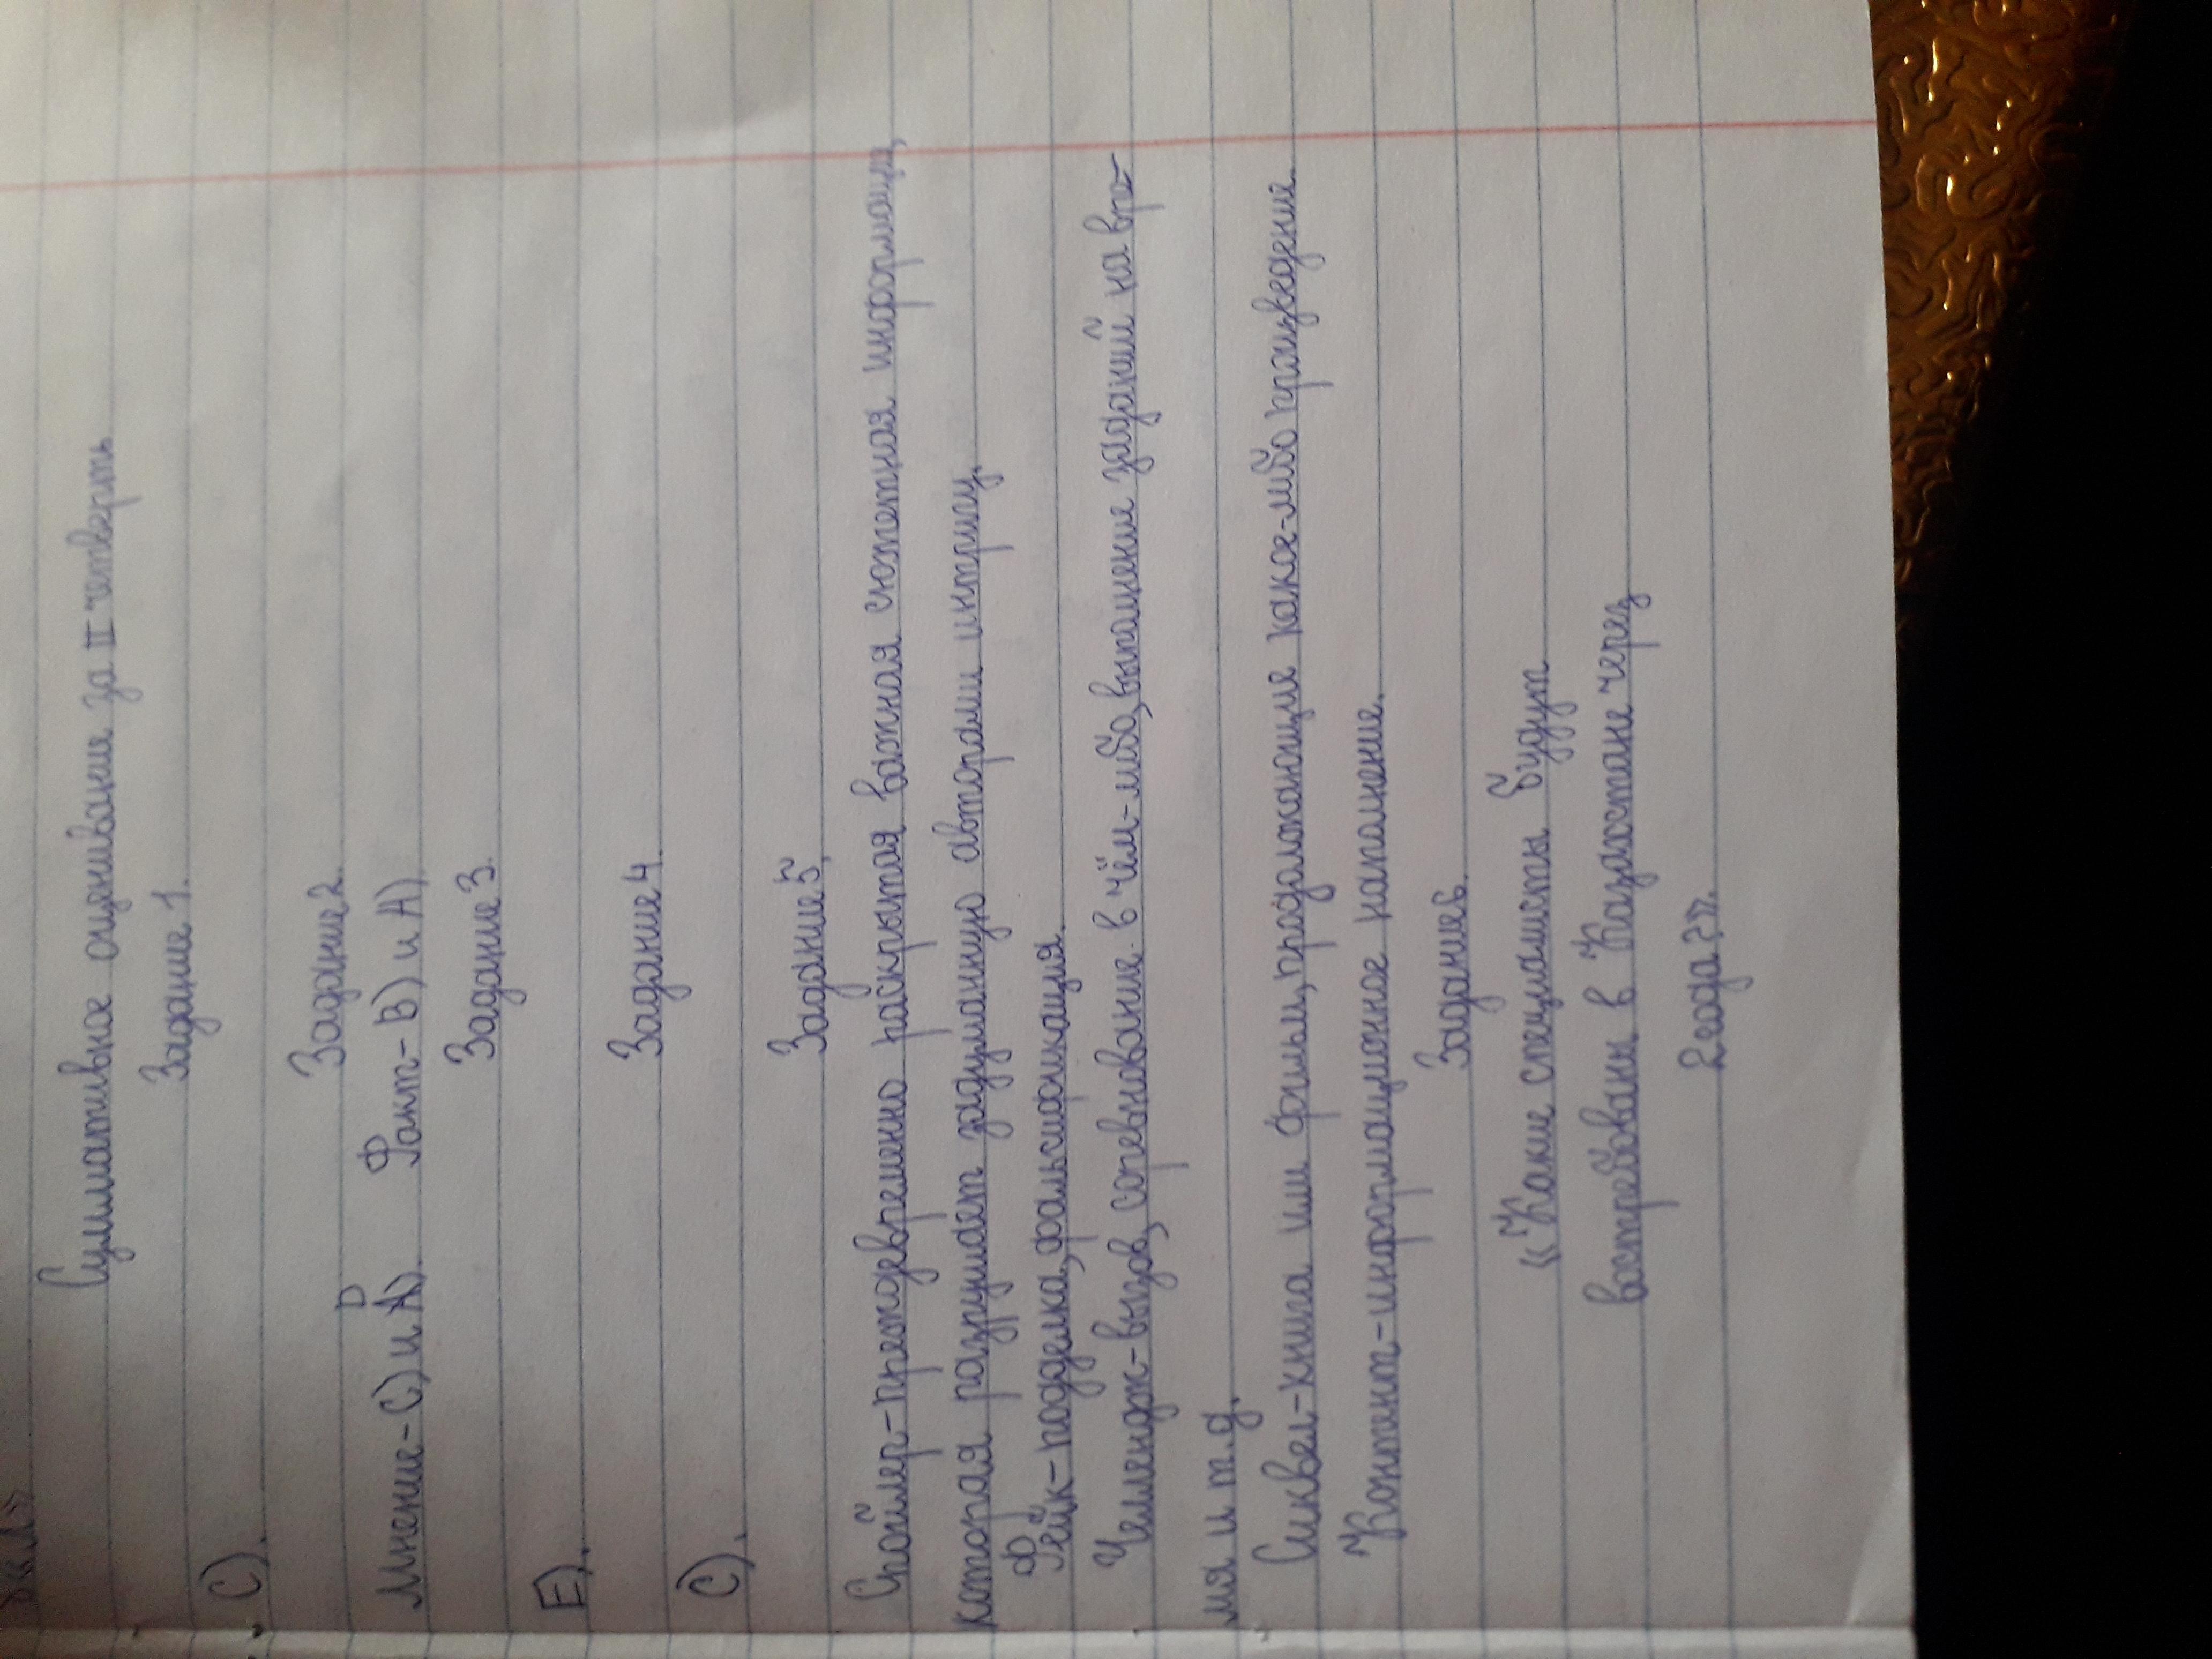 Суммативное оценивание за II четверть
Задание 1.
C).
Задание 2.
Мнение-С) и D). Факт-В) и А).
Задание 3.
E).
Задание 4.
C).
Задание 5.
Спойлер-претдевременно раскрытая важная сюжетная информация,
которая разрушает задуманную авторами интригу.
Фейк-подделка, фальсификация.
Челлендж-вызов, соревнование в чём-либо, выполнение заданий на вре-
мя и т.д.
Сиквел-книга или фильм, продолжающие какое-либо произведение.
Контент-информационное наполнение.
Задание 6.
«Какие специалисты будут
востребованы в Казахстане через
2 года?».